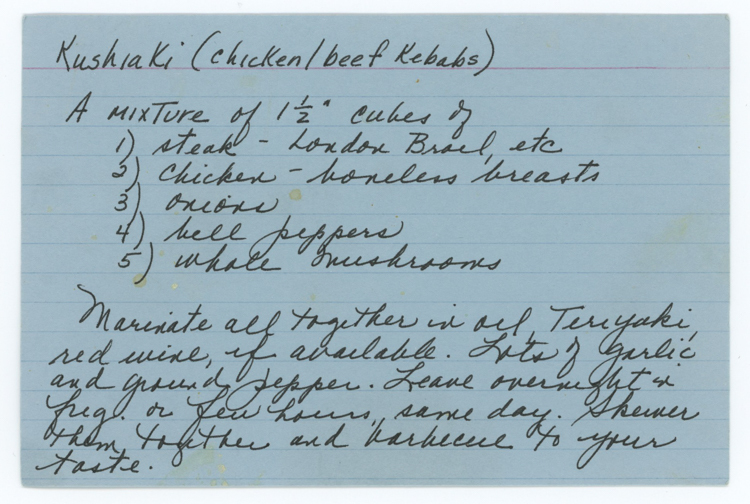 Kushiaki (chicken/beef Kebabs)
A mixture of 1 1/2" cubes of
1) steak - London Broil, etc
2) chicken - boneless breasts
3) onions
4) bell peppers
5) whole mushrooms
Marinate all together in oil, Teriyaki,
red wine, if available. Lots of garlic
and ground pepper. Leave overnight in
frig. or few hours, same day. Skewer
them together and barbecue to your
taste.